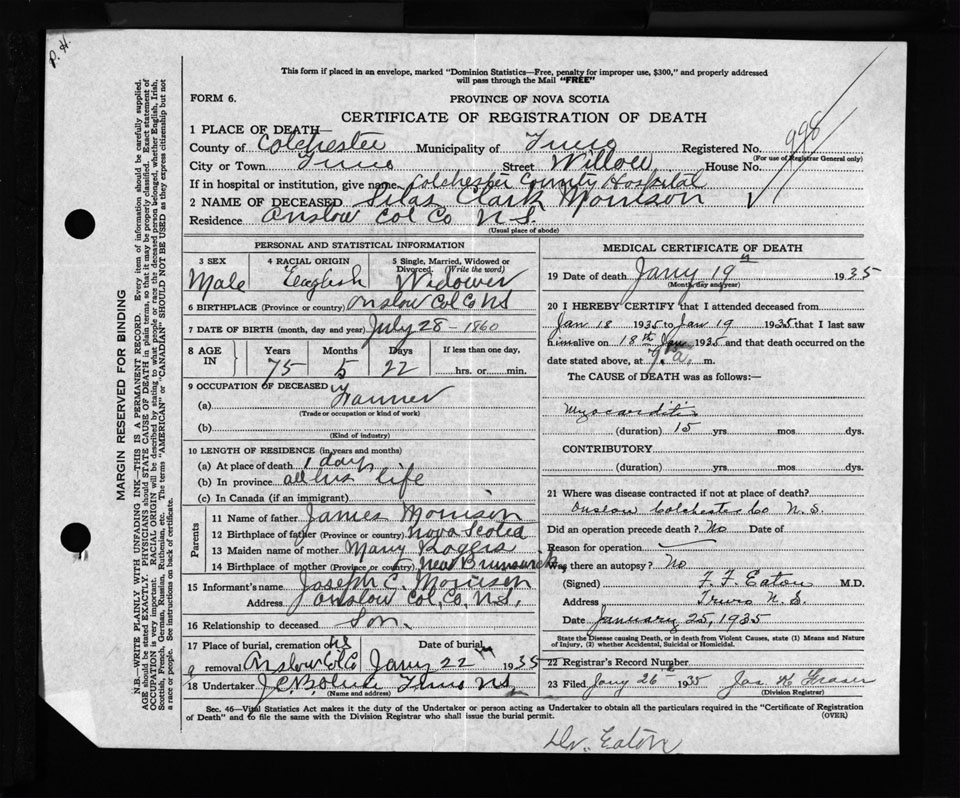 P. H.
This form if placed in an envelope, marked "Dominion Statistics—Free, penalty for improper use, $300," and properly addressed
will pass through the Mail "FREE"
FORM 6.
PROVINCE OF NOVA SCOTIA
CERTIFICATE OF REGISTRATION OF DEATH
998
1 PLACE OF DEATH—
County of Colchester Municipality of Truro Registered No.
(For use of Registrar General only)
City or Town Truro Street Willow House No.
If in hospital or institution, give name Colchester County Hospital
2 NAME OF DECEASED Silas Clark Morrison
Residence Onslow Col Co N.S.
(Usual place of abode)
PERSONAL AND STATISTICAL INFORMATION
3 SEX 4 RACIAL ORIGIN 5 Single, Married, Widowed or
Divorced. (Write the word)
Male English Widower
6 BIRTHPLACE (Province or country) Onslow Col Co NS
7 DATE OF BIRTH (month, day and year) July 28 - 1860
8 AGE IN Years Months Days If less than one day,
75 5 22 hrs. or min.
9 OCCUPATION OF DECEASED
(a) Farmer
(Trade or occupation or kind of work)
(b)
(Kind of industry)
10 LENGTH OF RESIDENCE (in years and months)
(a) At place of death 1 day
(b) In province all his life
(c) In Canada (if an immigrant)
Parents
11 Name of father James Morrison
12 Birthplace of father (Province or country) Nova Scotia
13 Maiden name of mother Mary Rogers
14 Birthplace of mother (Province or country) New Brunswick
15 Informant's name Joseph C. Morrison
Address Onslow Col, Co, N.S,
16 Relationship to deceased Son.
17 Place of burial, cremation or Date of burial
removal Onslow Col Co NS Jany 22 1935
18 Undertaker Truro NS
(Name and address)
MEDICAL CERTIFICATE OF DEATH
19 Date of death Jany 19 1935
(Month, day and year)
20 I HEREBY CERTIFY that I attended deceased from
Jan 18 1935 to Jan 19 1935 that I last saw
him alive on 18th Jan 1935 and that death occurred on the
date stated above, at 7 a. m.
The CAUSE of DEATH was as follows:—
Myocarditis
(duration) 15 yrs mos. dys.
CONTRIBUTORY
(duration) yrs mos. dys.
21 Where was disease contracted if not at place of death?
Onslow Colchester Co N.S.
Did an operation precede death? No Date of
Reason for operation
Was there an autopsy? No
(Signed) F. F. Eaton M.D.
Address Truro N.S.
Date January 25, 1935
State the Disease causing Death, or in death from Violent Causes, state (1) Means and Nature
of Injury, (2) whether Accidental, Suicidal or Homicidal.
22 Registrar's Record Number
23 Filed Jany 26 1935 Jas K Fraser
(Division Registrar)
Sec. 46—Vital Statistics Act makes it the duty of the Undertaker or person acting as Undertaker to obtain all the particulars required in the "Certificate of Registration
of Death" and to file the same with the Division Registrar who shall issue the burial permit. (OVER)
Dr. Eaton
MARGIN RESERVED FOR BINDING
N.B.—WRITE PLAINLY WITH UNFADING INK—THIS IS A PERMANENT RECORD. Every item of information should be carefully supplied.
AGE should be stated EXACTLY. PHYSICIANS should STATE CAUSE OF DEATH in plain terms, so that it may be properly classified. Exact statement of
OCCUPATION is very important. RACIAL ORIGIN will be described by stating to what people or race the deceased person belonged, whether English, Irish,
Scottish, French, German, Russian, Ruthenian, etc. The terms "AMERICAN" or "CANADIAN" SHOULD NOT BE USED as they express citizenship but not
a race or people. See instructions on back of certificate.